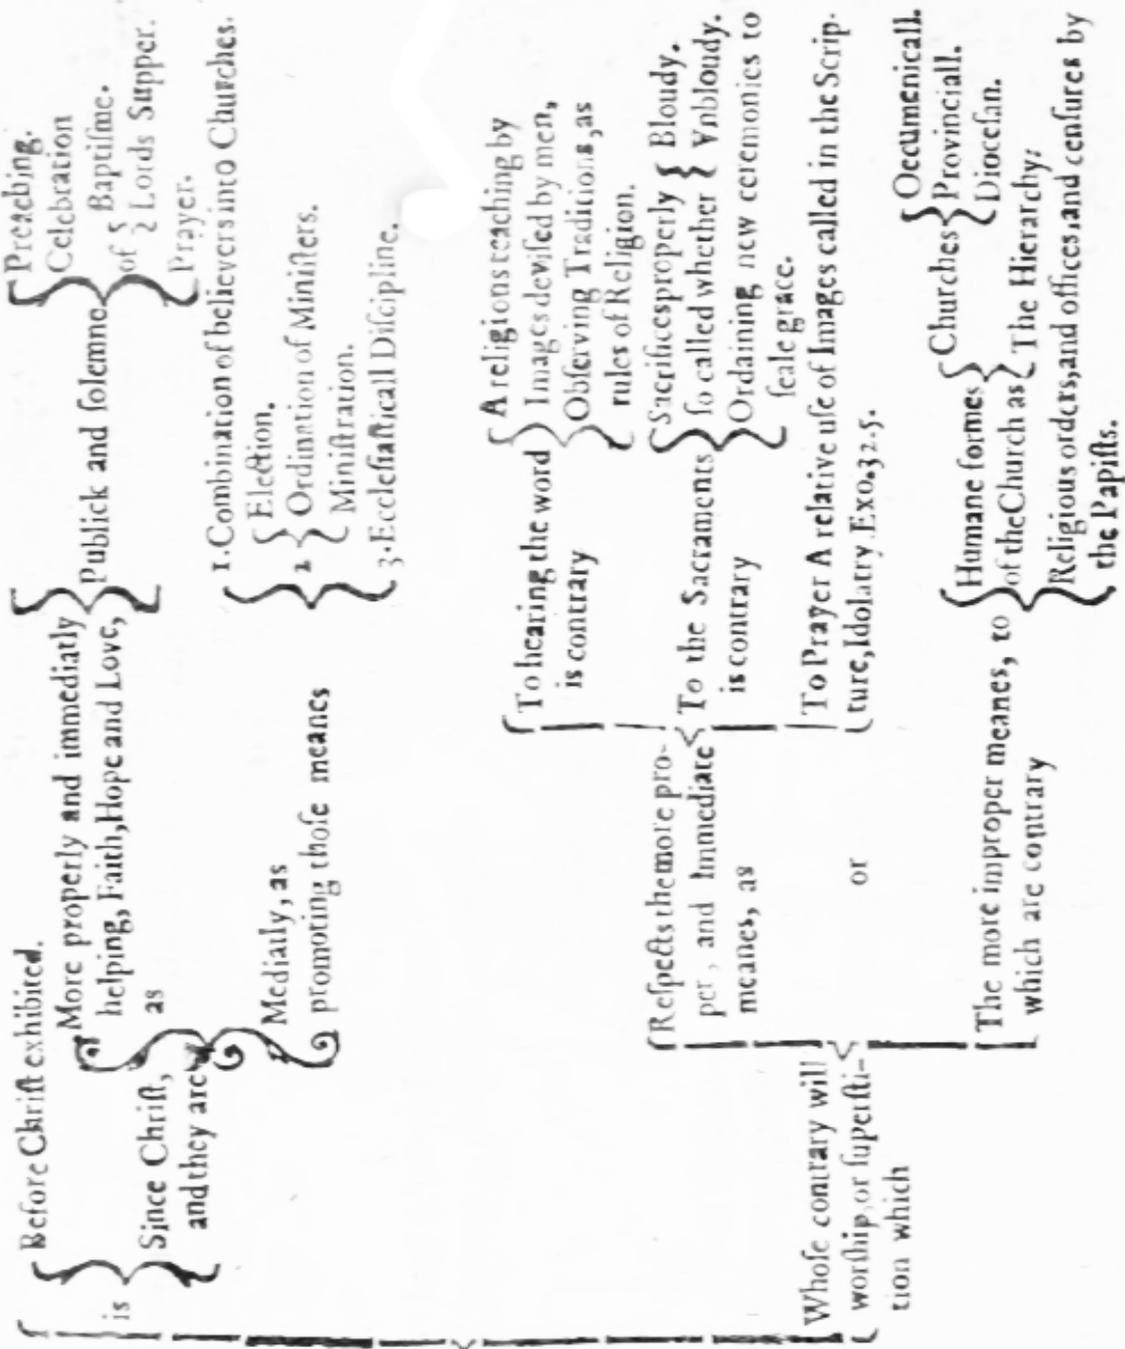 is
Before Christ exhibited.
Since Christ,
and they are
More properly and immediatly
helping, Faith, Hope and Love,
as
Publick and ſolemne
Preaching.
Celebration
of
Baptiſme.
Lords Supper.
Prayer.
Mediatly, as
promoting thoſe meanes
1. Combination of believers into Churches.
2
Election.
Ordination of Miniſters.
Miniſtration.
3. Eccleſiaſticall Diſcipline.
Whoſe contrary will
worſhip, or ſuperſti-
tion which
Reſpects the more pro-
per, and Immediate
meanes, as
To hearing the word
is contrary
A religions teaching by
Images deviſed by men,
Obſerving Traditions, as
rules of Religion.
To the Sacraments
is contrary
Sacrifices properly
ſo called whether
Bloudy.
Vnbloudy.
Ordaining new ceremonies to
ſeale grace.
To Prayer A relative uſe of Images called in the Scrip-
ture, Idolatry. Exo. 32.5.
or
The more improper meanes, to
which are contrary
Humane formes
of the Church as
Churches
Oecumenicall.
Provinciall.
Dioceſan.
The Hierarchy:
Religious orders, and offices, and cenſures by
the Papiſts.